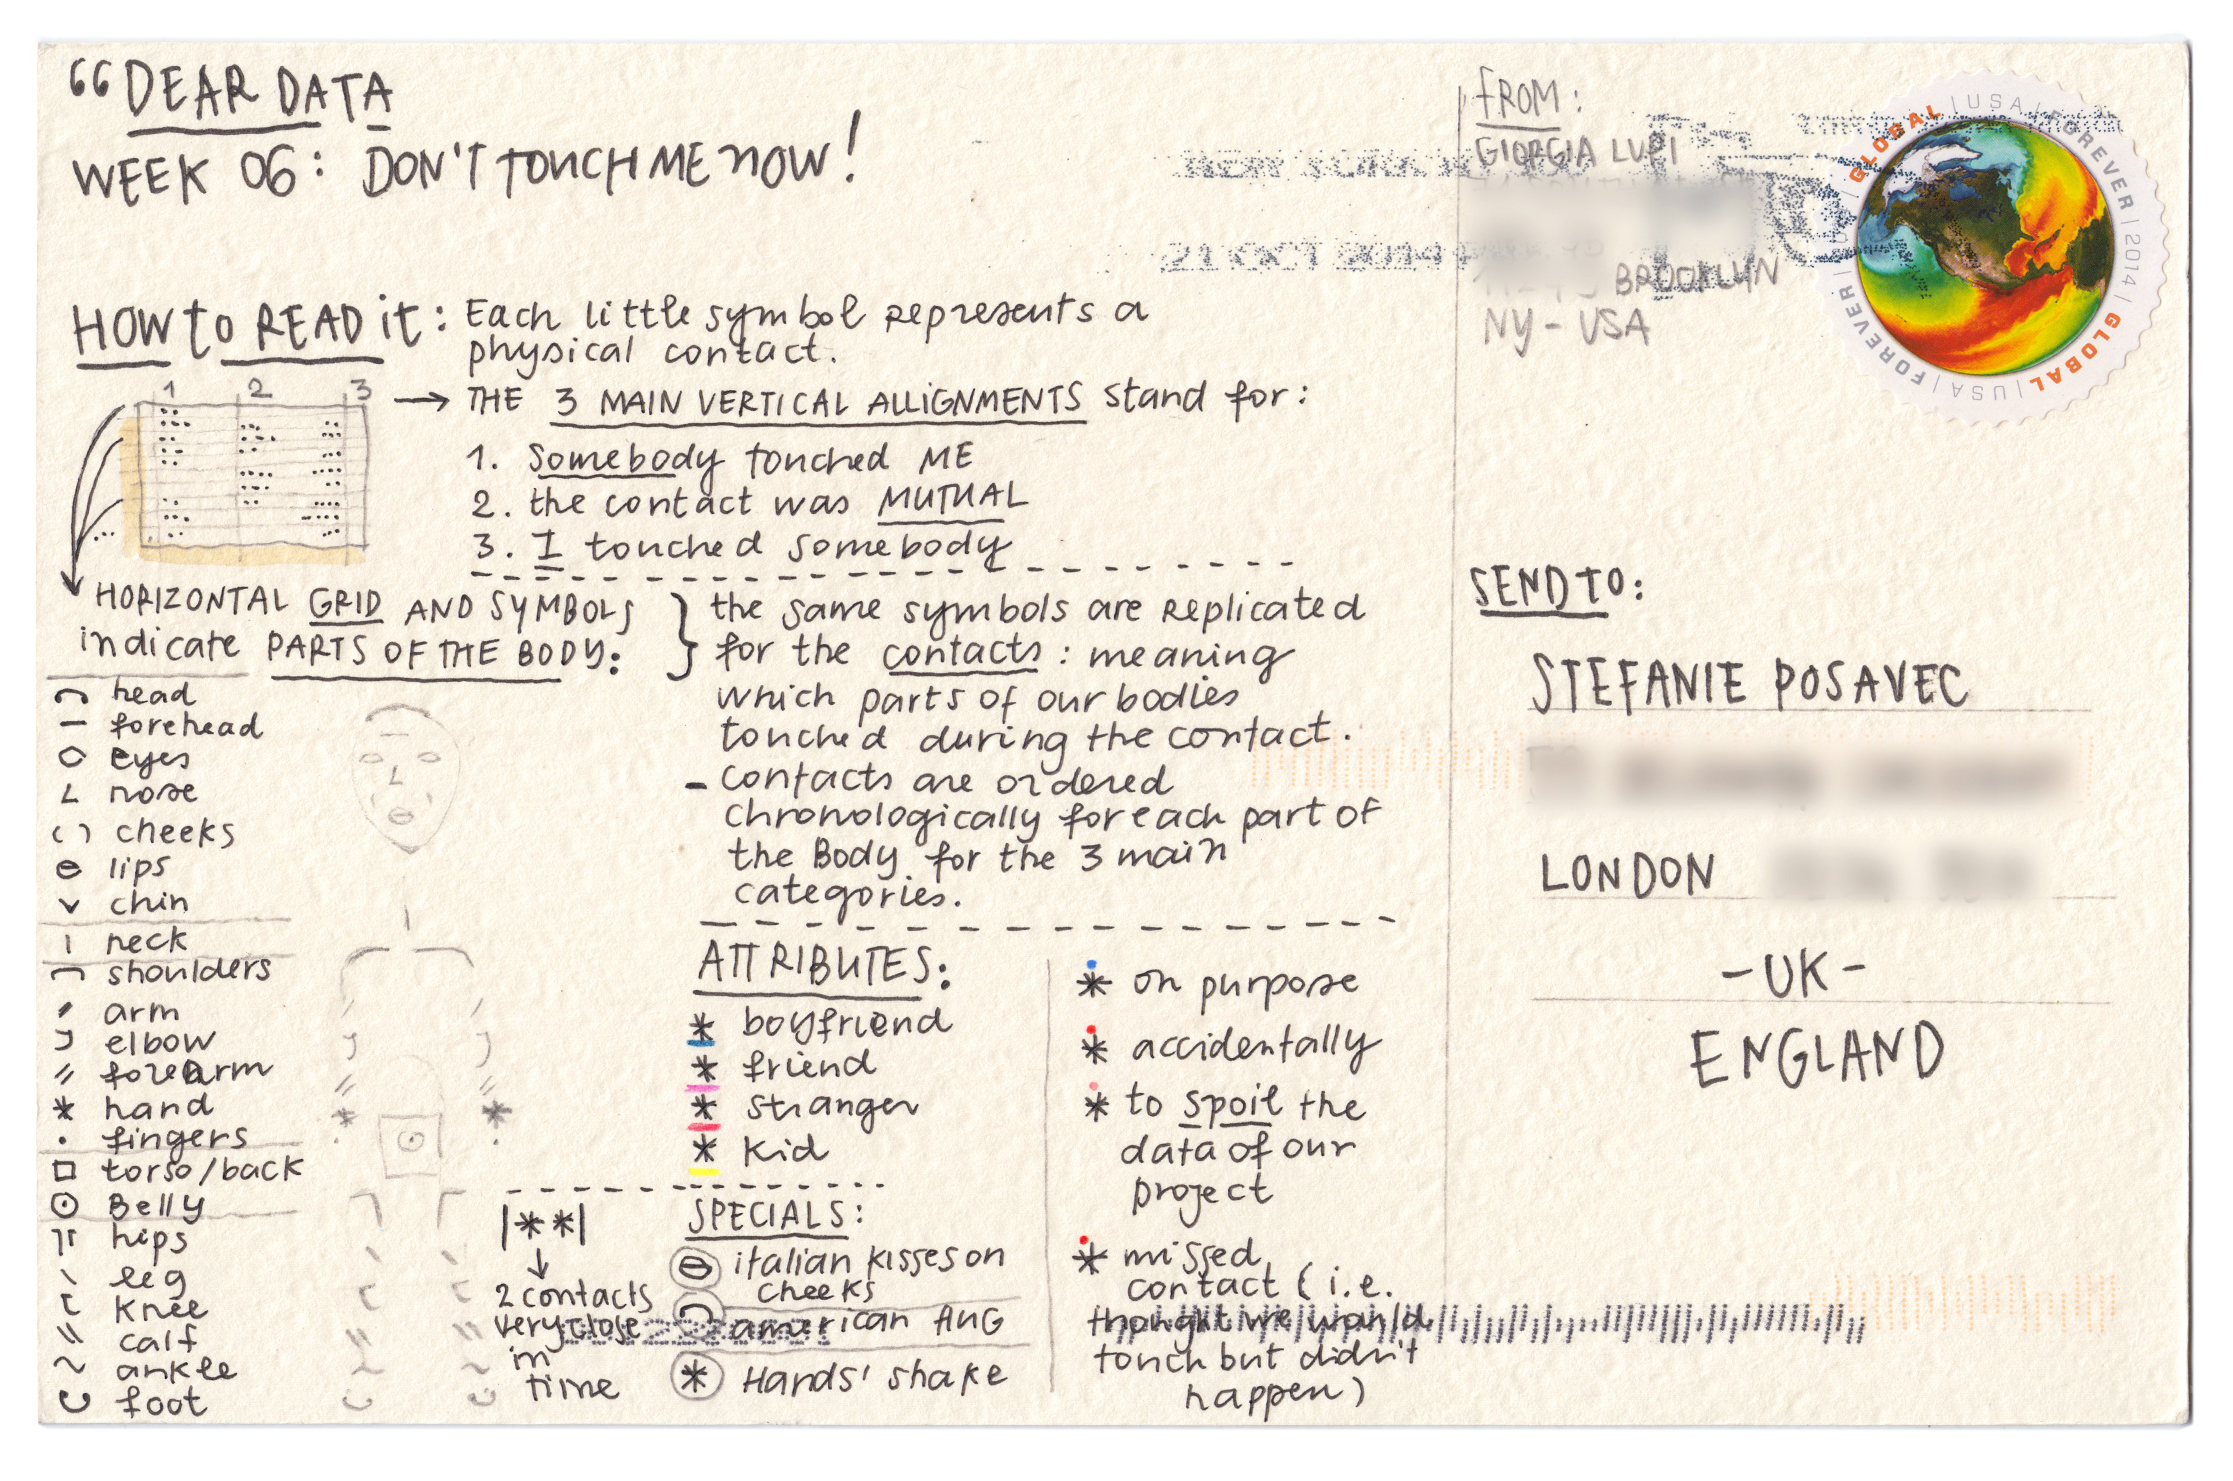 “DEAR DATA
WEEK 06: DON'T TOUCH ME NOW!
HOW to READ it: Each little symbol represents a
physical contact.
1 2 3
→ THE 3 MAIN VERTICAL ALLIGNMENTS stand for:
1. Somebody touched ME
2. the contact was MUTUAL
3. I touched somebody
HORIZONTAL GRID AND SYMBOLS
indicate PARTS OF THE BODY:
head
forehead
eyes
nose
cheeks
lips
chin
neck
shoulders
arm
elbow
forearm
hand
fingers
torso/back
Belly
hips
leg
knee
calf
ankle
foot
the same symbols are replicated
for the contacts: meaning
which parts of our bodies
touched during the contact.
- contacts are ordered
chronologically for each part of
the Body for the 3 main
categories.
ATTRIBUTES:
* boyfriend
* friend
* stranger
* kid
* on purpose
* accidentally
* to spoil the
data of our
project
* missed
contact (i.e.
thought we would
touch but didn't
happen)
|**|
↓
2 contacts
very close
in
time
SPECIALS:
italian kisses on
cheeks
american HUG
* Hands' shake
FROM:
GIORGIA LUPI
BROOKLYN
NY - USA
NEW YORK
21 OCT 2014
GLOBAL | USA | FOREVER | 2014 | GLOBAL | USA | FOREVER
SEND TO:
STEFANIE POSAVEC
LONDON
- UK -
ENGLAND